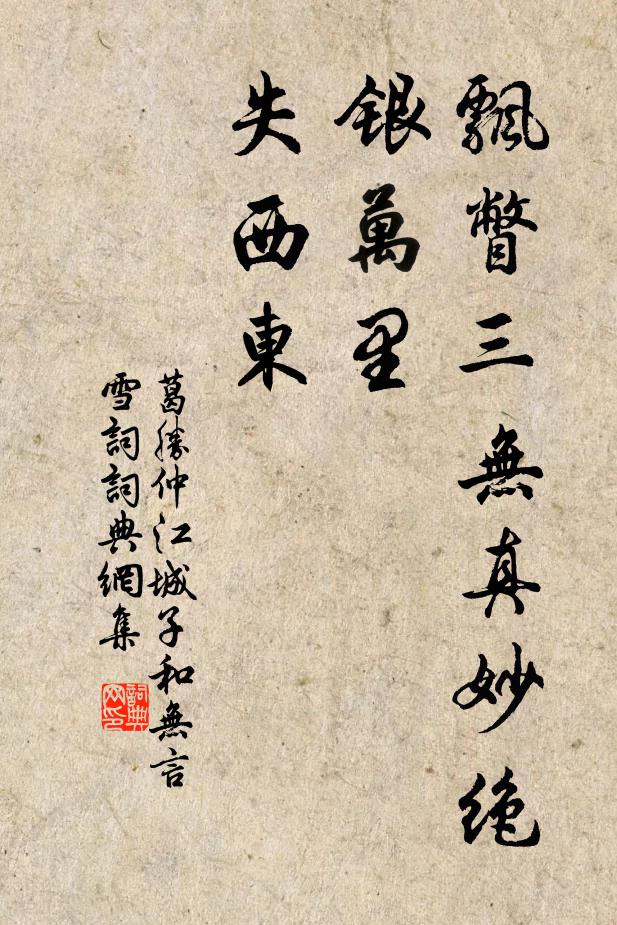 飄瞥三無真妙絕
銀萬里
失西東
葛勝仲江城子和無言
雪詞詞典網集
詞典網印